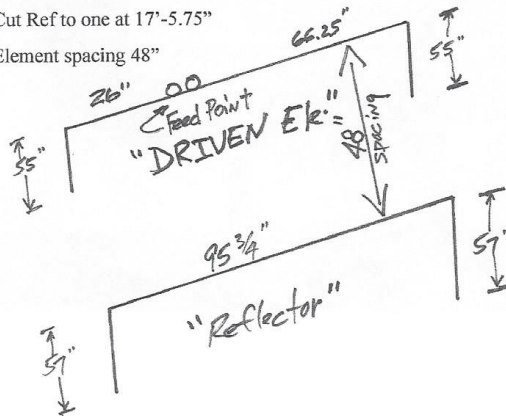 Cut Ref to one at 17’-5.75”
Element spacing 48”
66.25"
55"
26"
Feed Point
"DRIVEN Ele."
48"
spacing
55"
95 3/4"
57"
"Reflector"
57"